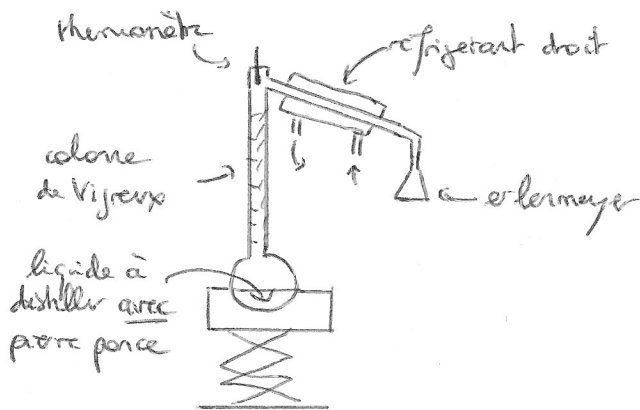 thermomètre
réfrigerant droit
colonne
de Vigreux
erlenmeyer
liquide à
distiller avec
pierre ponce